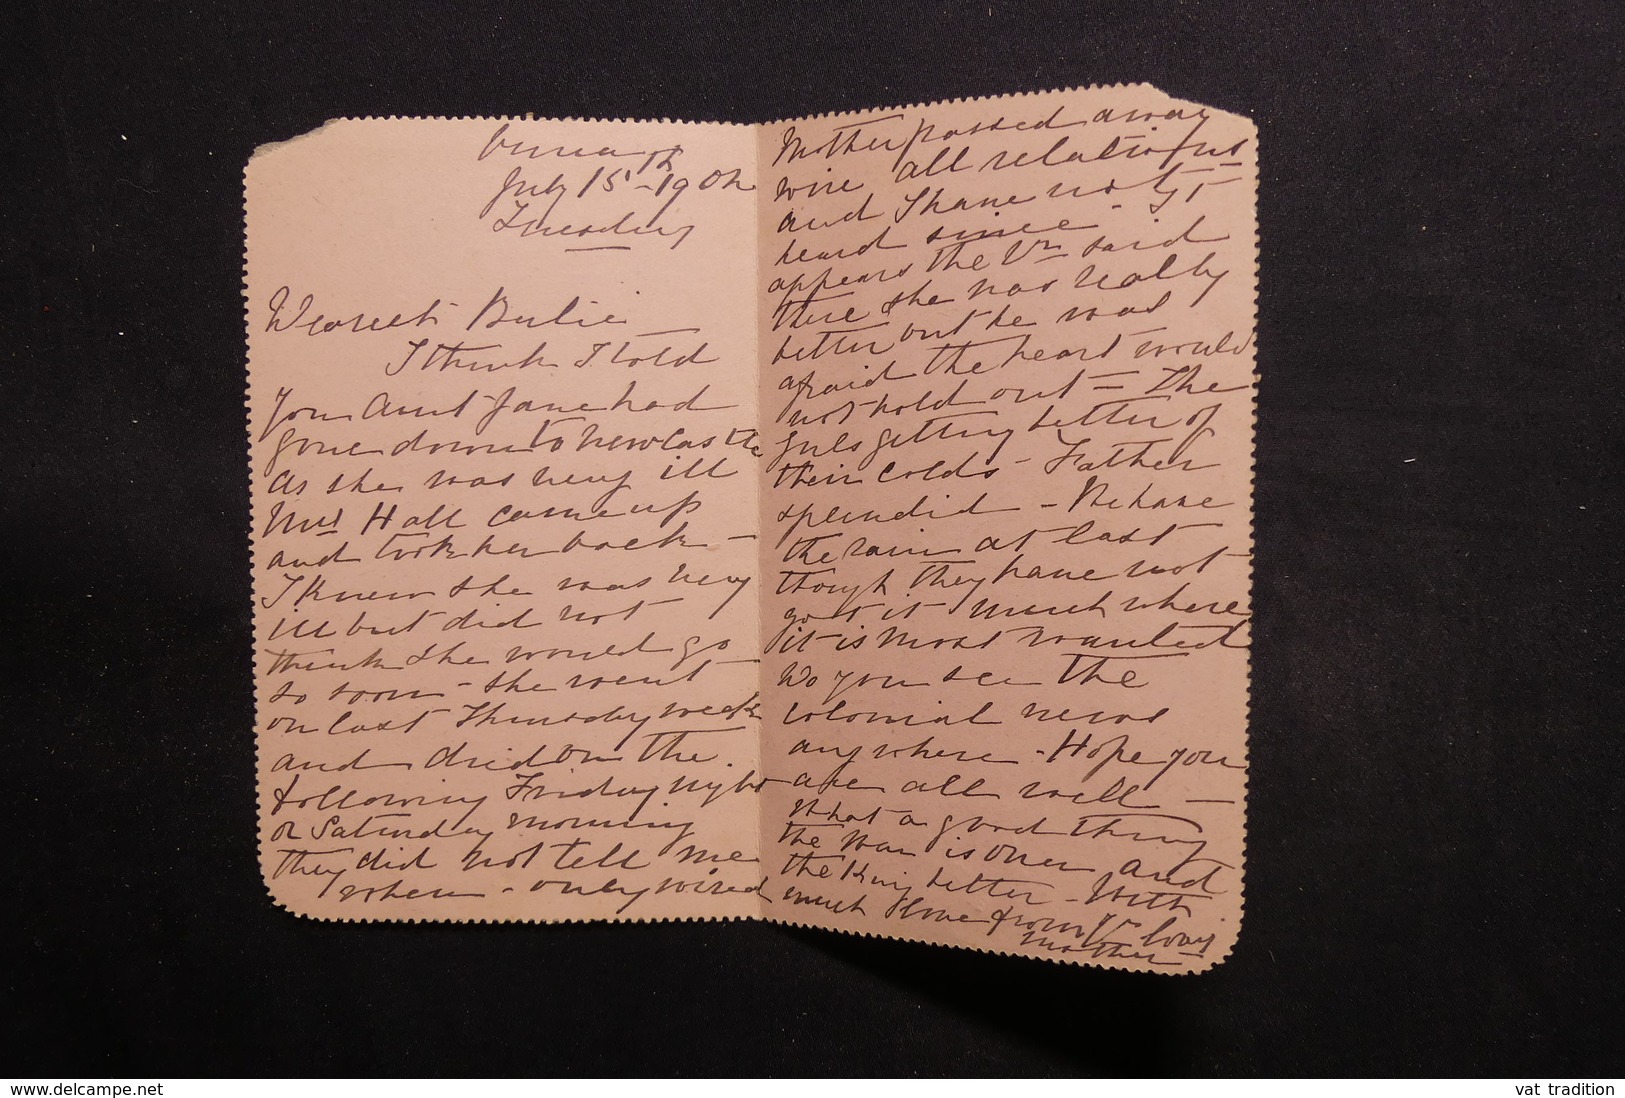 July 15th - 1902
Tuesday
Dearest Bertie
I think I told
you Aunt Jane had
gone down to Newcastle
as she was very ill
Mrs Hall came up
and took her back -
I knew she was very
ill but did not
think she would go
so soon - she went
on last Thursday week
and died on the
following Friday night
or Saturday morning
they did not tell me
when - only wired
Mother passed away
wire all relations
and I have not
heard since - It
appears the Dr said
there she was really
better but he was
afraid the heart would
not hold out = The
girls getting better of
their colds - Father
splendid - We have
the rain at last
though they have not
got it much where
it is most wanted
Do you see the
colonial news
anywhere - Hope you
are all well -
What a good thing
the War is over and
the King better - With
much love from yr lovg
Mother
www.delcampe.net
vat tradition